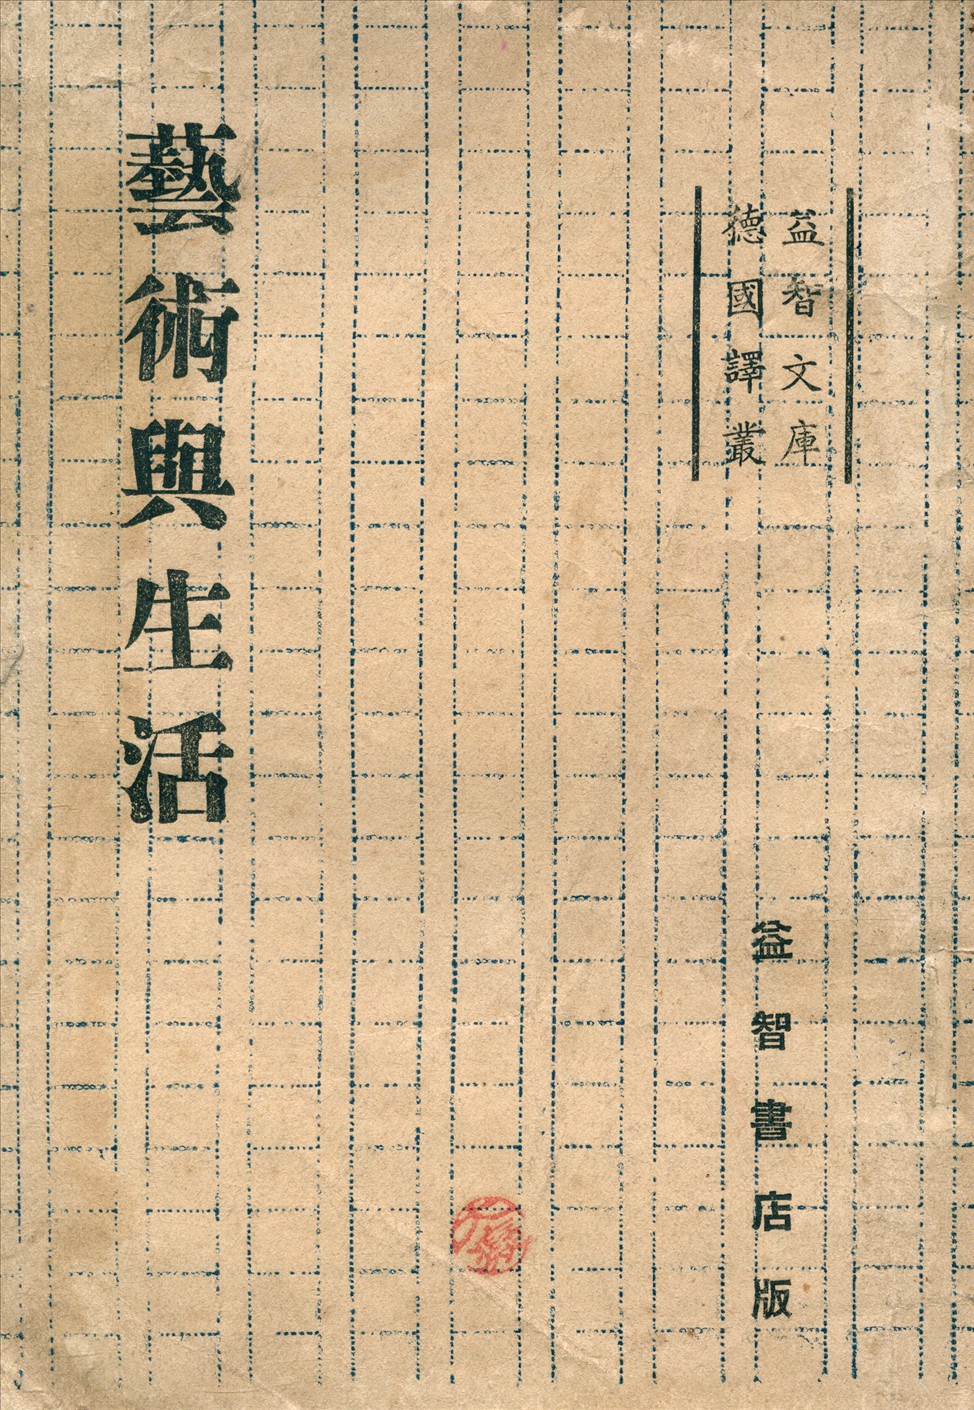 益智文庫
德國譯叢
益智書店版
藝術與生活